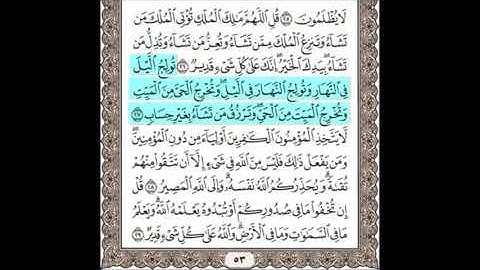 لَا يُظْلَمُونَ ﴿٢٥﴾ قُلِ اللَّهُمَّ مَالِكَ الْمُلْكِ تُؤْتِي الْمُلْكَ مَن
تَشَاءُ وَتَنزِعُ الْمُلْكَ مِمَّن تَشَاءُ وَتُعِزُّ مَن تَشَاءُ وَتُذِلُّ مَن
تَشَاءُ ۖ بِيَدِكَ الْخَيْرُ ۖ إِنَّكَ عَلَىٰ كُلِّ شَيْءٍ قَدِيرٌ ﴿٢٦﴾ تُولِجُ اللَّيْلَ
فِي النَّهَارِ وَتُولِجُ النَّهَارَ فِي اللَّيْلِ ۖ وَتُخْرِجُ الْحَيَّ مِنَ الْمَيِّتِ
وَتُخْرِجُ الْمَيِّتَ مِنَ الْحَيِّ ۖ وَتَرْزُقُ مَن تَشَاءُ بِغَيْرِ حِسَابٍ ﴿٢٧﴾
لَّا يَتَّخِذِ الْمُؤْمِنُونَ الْكَافِرِينَ أَوْلِيَاءَ مِن دُونِ الْمُؤْمِنِينَ ۖ
وَمَن يَفْعَلْ ذَٰلِكَ فَلَيْسَ مِنَ اللَّهِ فِي شَيْءٍ إِلَّا أَن تَتَّقُوا مِنْهُمْ
تُقَاةً ۗ وَيُحَذِّرُكُمُ اللَّهُ نَفْسَهُ ۗ وَإِلَى اللَّهِ الْمَصِيرُ ﴿٢٨﴾ قُلْ
إِن تُخْفُوا مَا فِي صُدُورِكُمْ أَوْ تُبْدُوهُ يَعْلَمْهُ اللَّهُ ۗ وَيَعْلَمُ
مَا فِي السَّمَاوَاتِ وَمَا فِي الْأَرْضِ ۗ وَاللَّهُ عَلَىٰ كُلِّ شَيْءٍ قَدِيرٌ ﴿٢٩﴾
٥٣